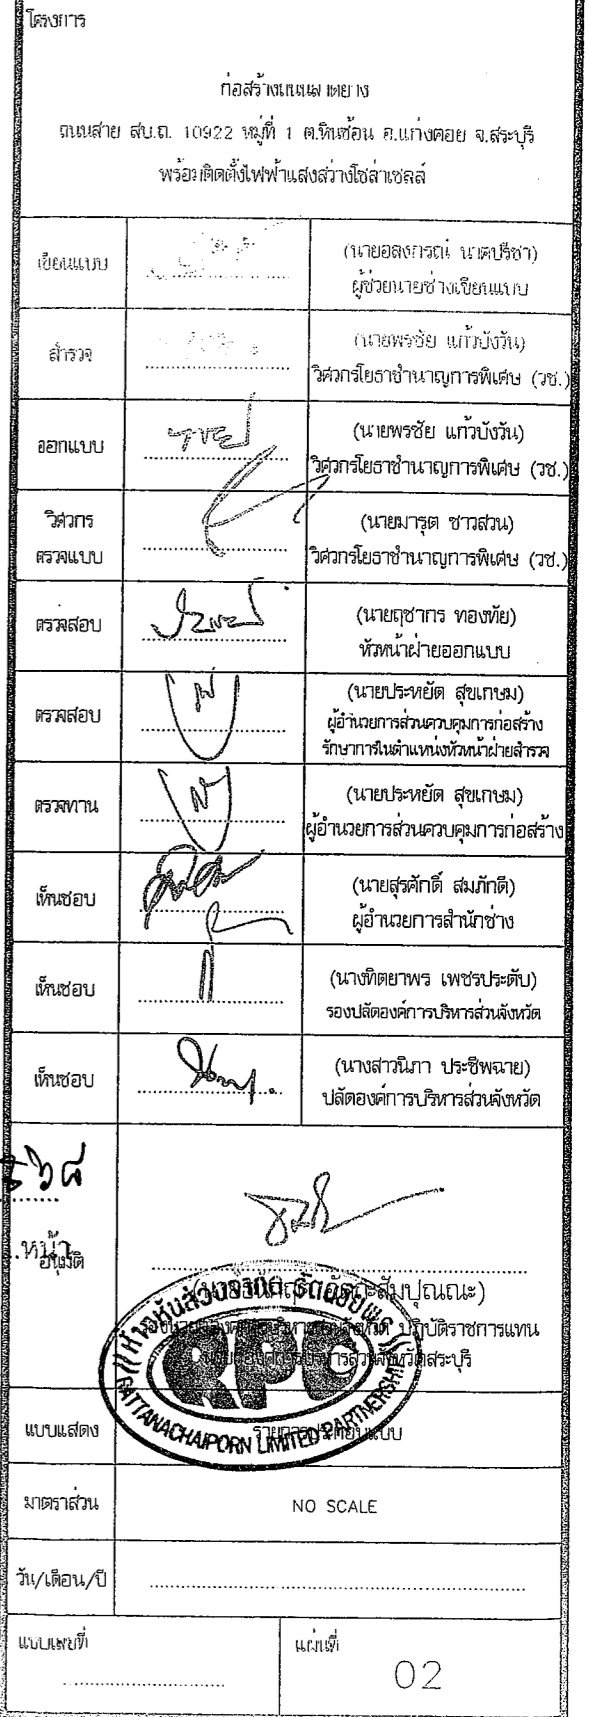 โครงการ
ก่อสร้างถนนลาดยาง
ถนนสาย สบ.ถ. 10922 หมู่ที่ 1 ต.หินซ้อน อ.แก่งคอย จ.สระบุรี
พร้อมติดตั้งไฟฟ้าแสงสว่างโซล่าเซลล์
เขียนแบบ
(นายอลงกรณ์ นาคปรีชา)
ผู้ช่วยนายช่างเขียนแบบ
สำรวจ
(นายพรชัย แก้วบังวัน)
วิศวกรโยธาชำนาญการพิเศษ (วช.)
ออกแบบ
(นายพรชัย แก้วบังวัน)
วิศวกรโยธาชำนาญการพิเศษ (วช.)
วิศวกร
ตรวจแบบ
(นายมารุต ชาวสวน)
วิศวกรโยธาชำนาญการพิเศษ (วช.)
ตรวจสอบ
(นายฤชากร ทองทัย)
หัวหน้าฝ่ายออกแบบ
ตรวจสอบ
(นายประหยัด สุขเกษม)
ผู้อำนวยการส่วนควบคุมการก่อสร้าง
รักษาการในตำแหน่งหัวหน้าฝ่ายสำรวจ
ตรวจทาน
(นายประหยัด สุขเกษม)
ผู้อำนวยการส่วนควบคุมการก่อสร้าง
เห็นชอบ
(นายสุรศักดิ์ สมภักดี)
ผู้อำนวยการสำนักช่าง
เห็นชอบ
(นางทิตยาพร เพชรประดับ)
รองปลัดองค์การบริหารส่วนจังหวัด
เห็นชอบ
(นางสาวนิภา ประชีพฉาย)
ปลัดองค์การบริหารส่วนจังหวัด
หน้า
อนุมัติ
ปฏิบัติราชการแทน
นายกองค์การบริหารส่วนจังหวัดสระบุรี
ห้างหุ้นส่วนจำกัด รัตนชัยพร
RPC
RATTANACHAIPORN LIMITED PARTNERSHIP
แบบแสดง
รายการประกอบแบบ
มาตราส่วน
NO SCALE
วัน/เดือน/ปี
แบบเลขที่
แผ่นที่
02